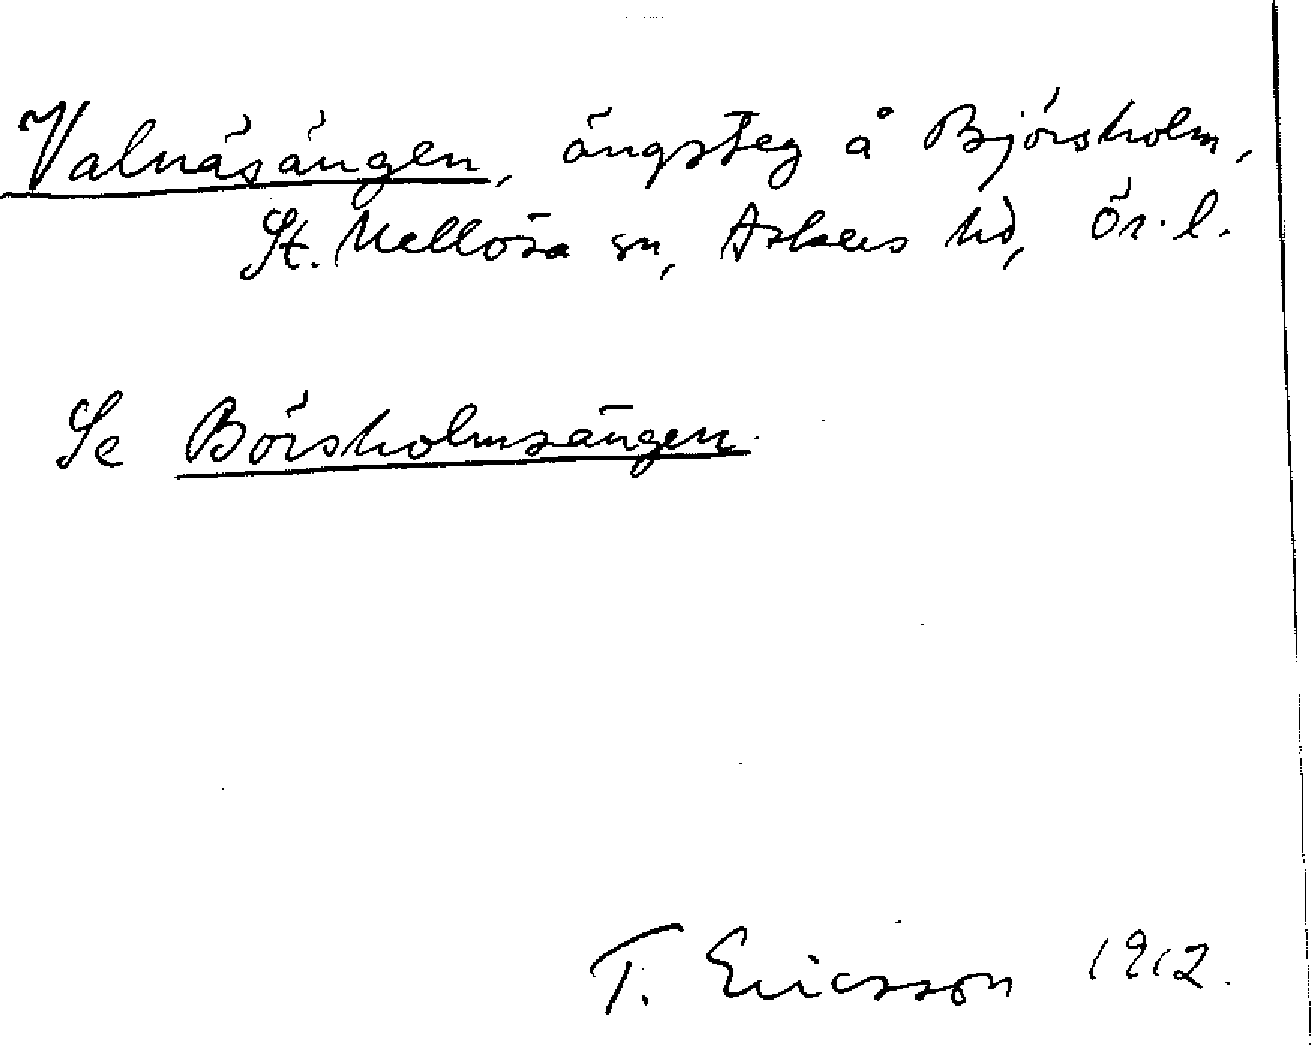 Valnäsängen, ängsteg å Björsholm,
St. Mellösa sn, Askers hd, Ör. l.
Se Börsholmsängen.
T. Ericsson 1912.